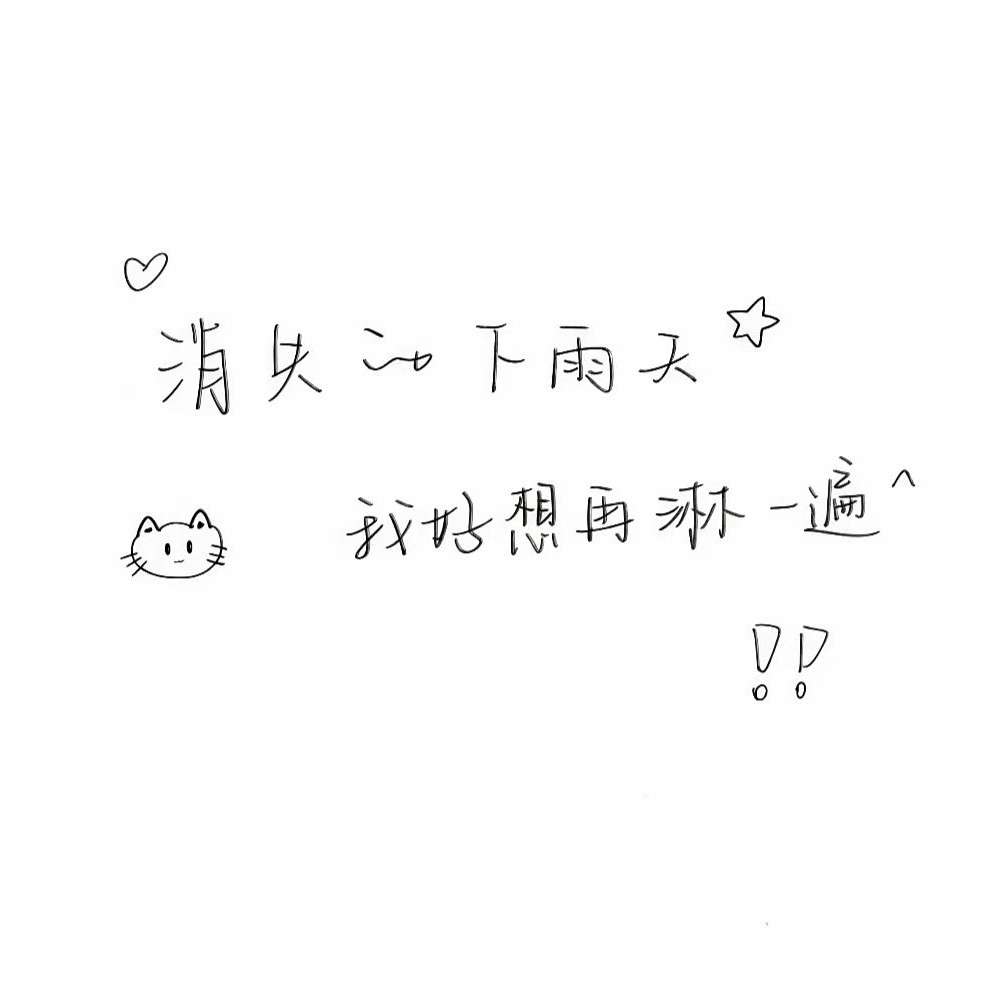 消失的下雨天
我好想再淋一遍^
!!